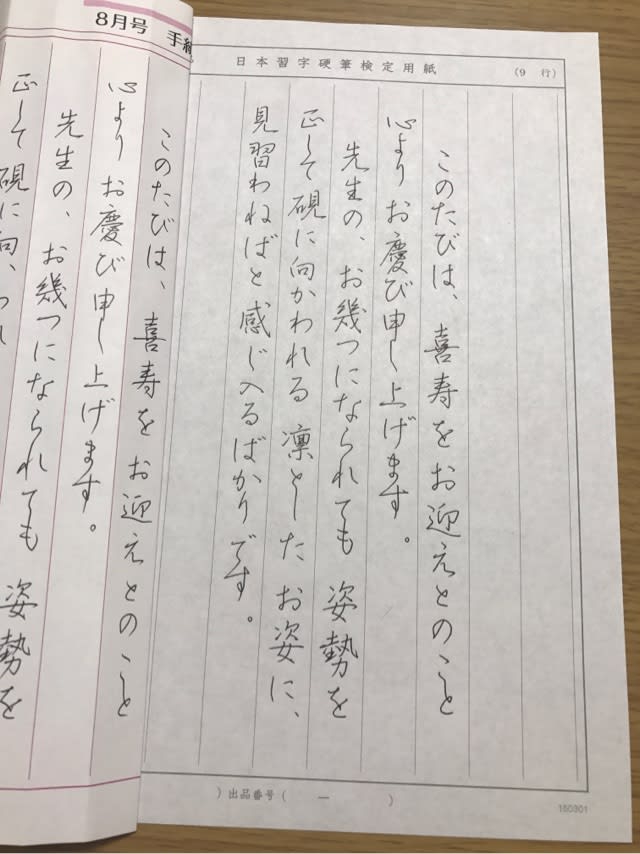 8月号 手紙
日本習字硬筆検定用紙
(9 行)
このたびは、喜寿をお迎えとのこと
心よりお慶び申し上げます。
先生の、お幾つになられても姿勢を
正して硯に向かわれる凛としたお姿に、
見習わねばと感じ入るばかりです。
)出品番号( ー )
160301
このたびは、喜寿をお迎えとのこと
心よりお慶び申し上げます。
先生の、お幾つになられても姿勢を
正して硯に向か